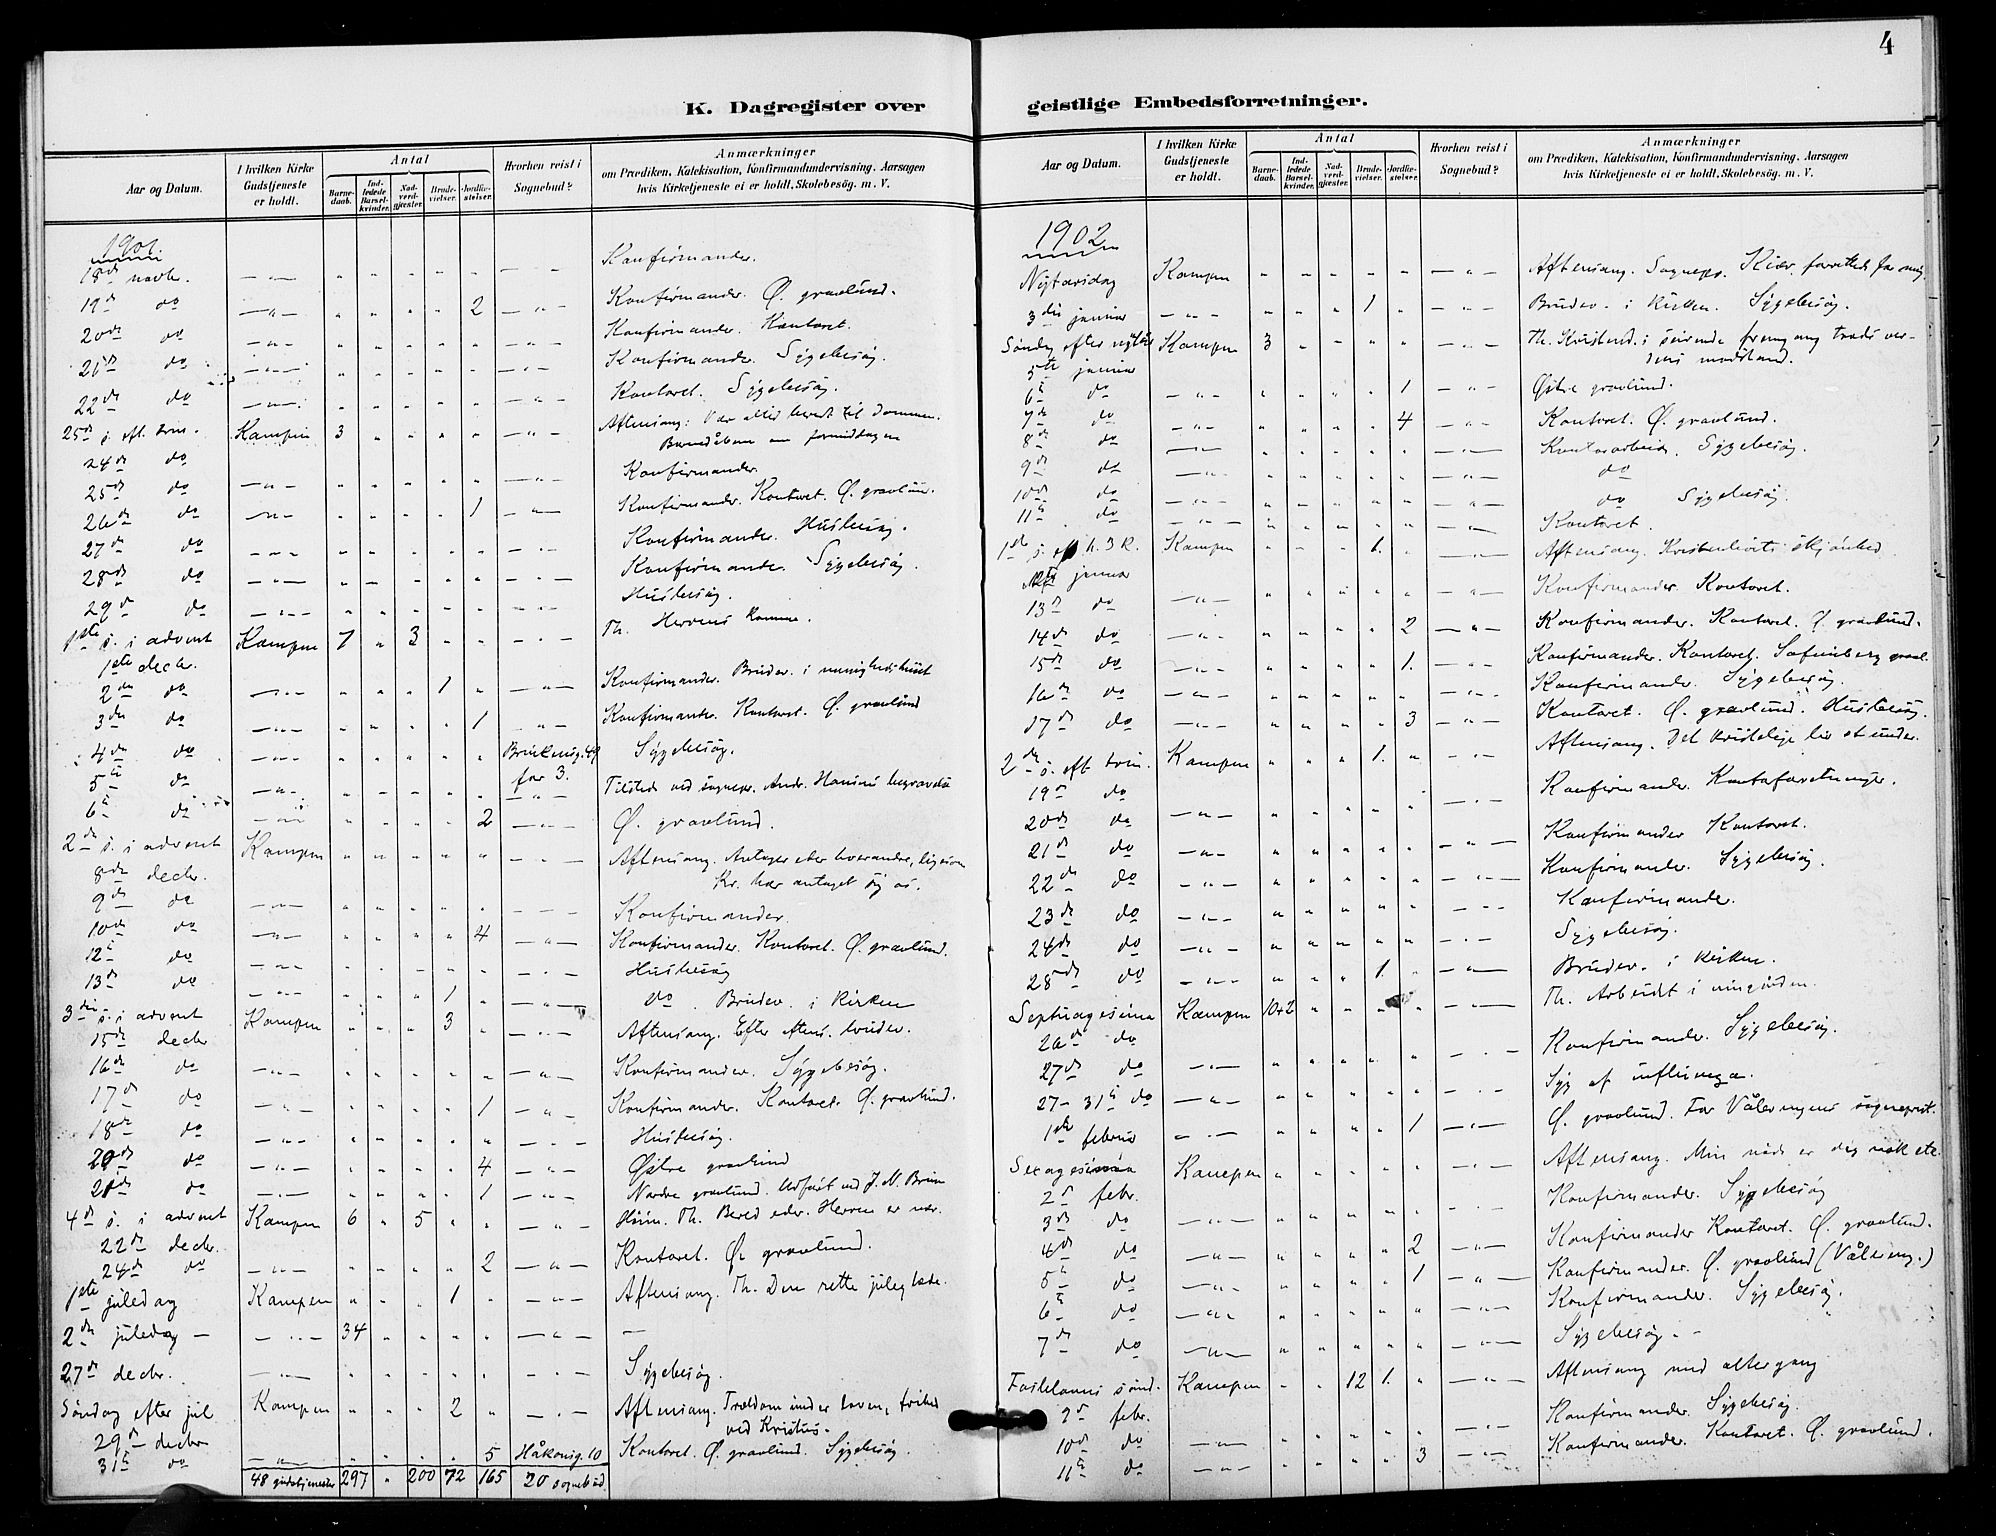 4
K. Dagregister over geistlige Embedsforretninger.
Aar og Datum. I hvilken Kirke Gudstjeneste er holdt. Antal Barnedaab. Indledede Barselkvinder. Nadverdgjæster. Brudevielser. Jordfæstelser. Hvorhen reist i Sognebud? Anmærkninger om Prædiken, Katekisation, Konfirmandundervisning. Aarsagen hvis Kirketjeneste ei er holdt, Skolebesög. m. V.
1901.
18de novbr. Konfirmander.
19d do 2 Konfirmander. Ø. gravlund.
20de do Konfirmander. Kontoret.
21de do Konfirmander. Sygebesøg.
22de do Kontoret. Sygebesøg.
25de s. eft. trin. Kampen 3 Aftensang:
24de do
25de do Konfirmander.
26de do 1 Konfirmander. Kontoret. Ø. gravlun.
27de do Konfirmander. Husbesøg.
28de do Konfirmander. Sygebesøg.
29de do Husbesøg.
1ste s. i advent Kampen 7 3 Th. Herrens komme.
1ste decbr.
2den do 1 Konfirmander. Brudev. i menighedshuset
3die do 1 Konfirmander. Kontoret. Ø. gravlund
4de do Sygebesøg.
for 3.
5te do Tilstede ved sognepr. Andr. Hansens begravelse
6te do 2 Ø. gravlund.
2den s. i advent Kampen Aftensang. Antager eder hverandre, ligesom
8de decbr. Kr. har antaget sig os.
9de do Konfirmander.
10de do 4 Konfirmander. Kontoret. Ø. gravlund.
12te do Husbesøg
13de do 1 do Brudev. i Kirken
3die s. i advent Kampen 3 Aftensang. Efter aftens. brudev.
15de decbr
16de do Konfirmander. Sygebesøg.
17de do 1 Konfirmander. Kontoret. Ø. gravlund.
18de do Husbesøg.
20de do 4 Østre gravlund
21de do 1 Nordre gravlund.
4de s. i advent Kampen 6 5 Th. Bered eder. Herren er nær.
22de decbr.
24de do 2 Kontoret. Ø. gravlund.
1ste juledag Kampen 1 Aftensang. Th. Den rette juleglæde.
2den juledag 34
27de decbr. Sygebesøg.
Søndag efter jul Kampen 2 Aftensang. Trældom under loven, frihed
29de decbr ved Kristus.
31te do 5 Håkonsg. 10 Kontoret. Ø. gravlund. Sygebesøg.
48 gudstjenester 297 200 72 165 20 sognebud
Aar og Datum. I hvilken Kirke Gudstjeneste er holdt. Antal Barnedaab. Indledede Barselkvinder. Nadverdgjæster. Brudevielser. Jordfæstelser. Hvorhen reist i Sognebud? Anmærkninger om Prædiken, Katekisation, Konfirmandundervisning. Aarsagen hvis Kirketjeneste ei er holdt, Skolebesög. m. V.
1902
Nytårsdag Kampen Aftensang. Sognepr. Kiær forrettede for mig.
3die januar 1. Brudev. i kirken. Sygebesøg.
Søndag efter nytår Kampen 3 Th. Kristend. i seirende fremgang trods ver-
5te januar dens modstand.
6te do 1 Østre gravlund.
7de do 4 Kontoret. Ø. gravlund.
8de do Kontorarbeide. Sygebesøg.
9de do do
10de do do Sygebesøg.
11te do Kontoret.
1ste s. eft h. 3 K. Kampen 1. Aftensang.
januar
13de do Konfirmander. Kontoret.
14de do 2 Konfirmander. Kontoret. Ø. gravlund.
15de do 1. Konfirmander. Kontoret. Sofienberg gravl.
16de do Konfirmander. Sygebesøg.
17de do 3 Kontoret. Ø. gravlund. Husbesøg.
2den s. eft trin. Kampen 1. Aftensang. Det kristelige liv
19de do
20de do Konfirmander.
21de do Konfirmander Kontoret.
22de do Konfirmander. Sygebesøg.
23de do Konfirmander.
24de do Sygebesøg.
28de do 1. Brudev. i kirken.
Septuagesima Kampen 10+2 Th. Arbeidet i vingården.
26de do
27de do Konfirmander. Sygebesøg.
27-31te do Syg af influenza.
1ste februar 1 Ø. gravlund. For Vålerengens sogneprest.
Sexagesima Kampen Aftensang. Min nåde er dig nok etc
2den febr.
3die do Konfirmander. Sygebesøg
4de do 2 Konfirmander Kontoret. Ø. gravlund.
5te do 1 Konfirmander. Ø. gravlund (Vålereng.)
6te do Konfirmander. Sygebesøg.
7de do Sygebesøg.
Fastelavns sønd. Kampen 12 1. Aftensang med altergang
9de febr.
10de do Konfirmander. Sygebesøg.
11te do 3 Konfirmander. Kontoret. Ø. gravlund.